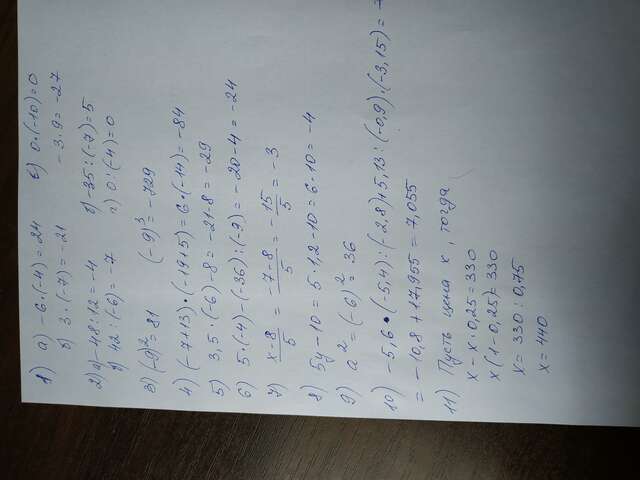 1) а) -6·(-4)=24 в) 0·(-10)=0
б) 3·(-7)=-21 -3·9=-27
2) а) -48:12=-4 в) -35:(-7)=5
б) 42:(-6)=-7 г) 0:(-4)=0
3) (-9)²=81 (-9)³=-729
4) (-7+13)·(-19+5)=6·(-14)=-84
5) 3,5·(-6)-8=-21-8=-29
6) 5·(-4)-(-36):(-9)=-20-4=-24
7) x-8/5 = -7-8/5 = -15/5 = -3
8) 5y-10=5·1,2-10=6-10=-4
9) a²=(-6)²=36
10) -5,6·(-5,4):(-2,8)+5,13:(-0,9)·(-3,15)=
=-10,8+17,955=7,055
11) Пусть цена x, тогда
x-x·0,25=330
x(1-0,25)=330
x=330:0,75
x=440